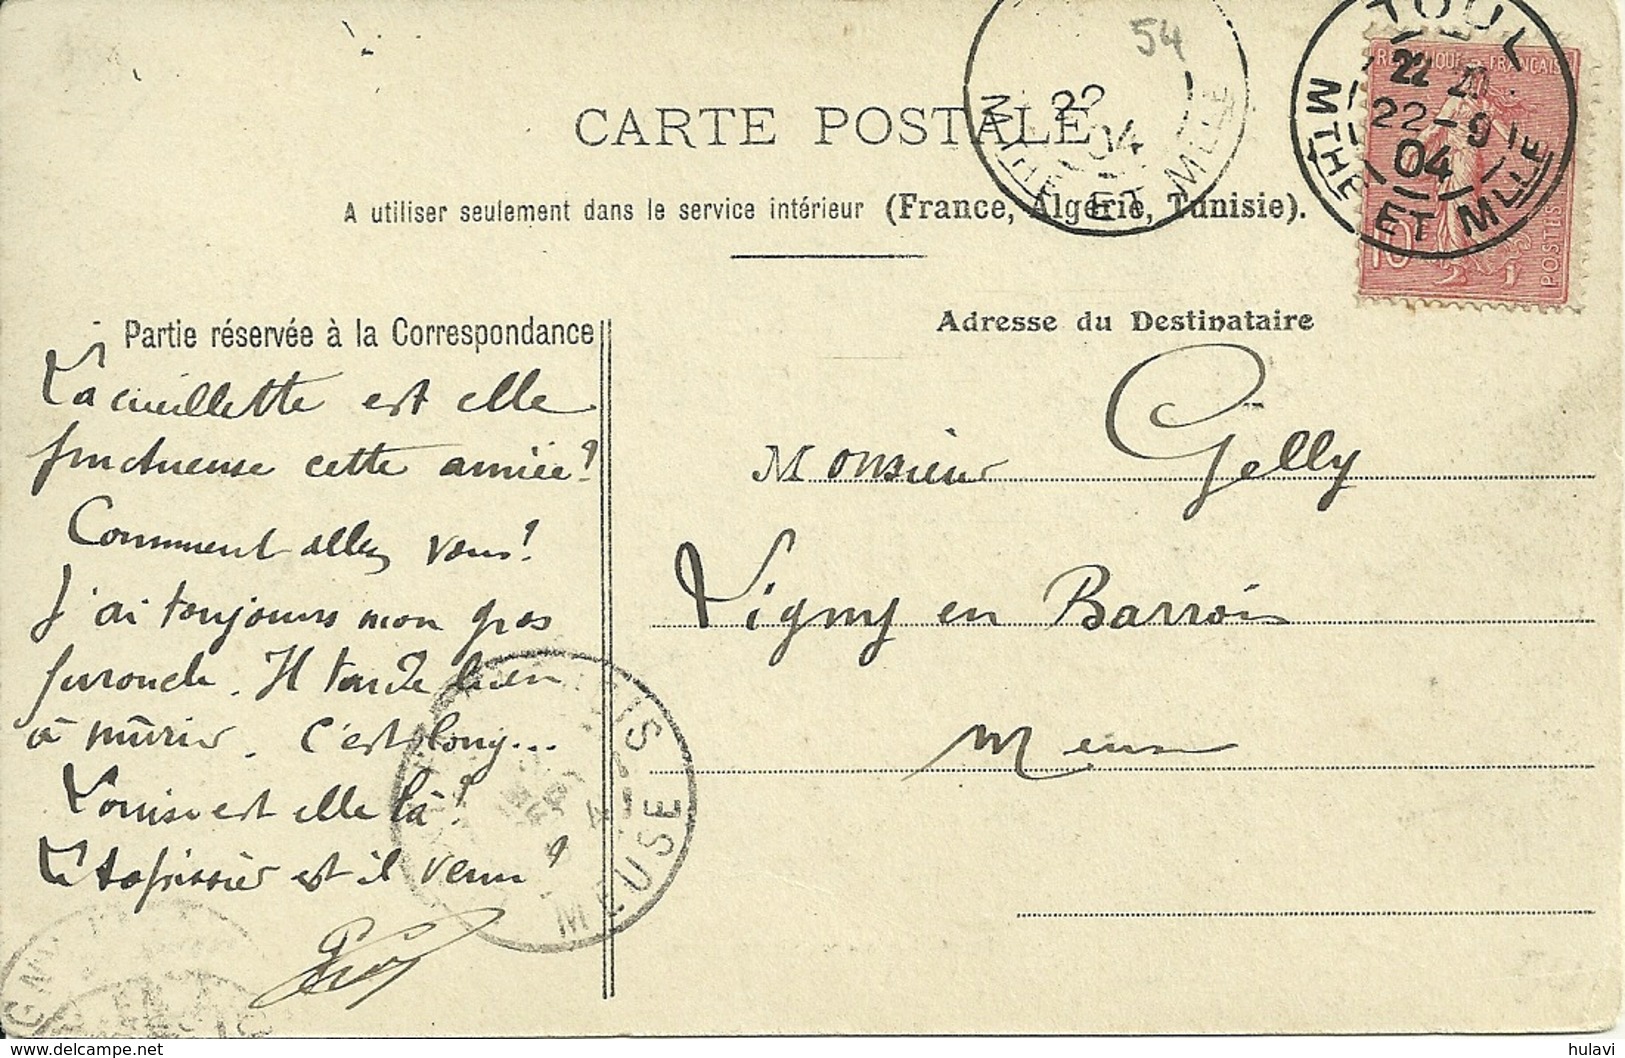 54
TOUL
22 21
22-9
04
MTHE ET MLLE
22
04
MTHE ET MLLE
REPUBLIQUE FRANÇAISE
10
POSTES
CARTE POSTALE
A utiliser seulement dans le service intérieur (France, Algérie, Tunisie).
Partie réservée à la Correspondance
La cueillette est elle
fructueuse cette année?
Comment allez vous?
J'ai toujours mon gros
furoncle. Il tarde bien
à mûrir. C'est long...
Louise est elle là?
Le tapissier est il venu?
Adresse du Destinataire
Monsieur Gelly
Ligny en Barrois
Meuse
MEUSE
hulavi
delcampe.net